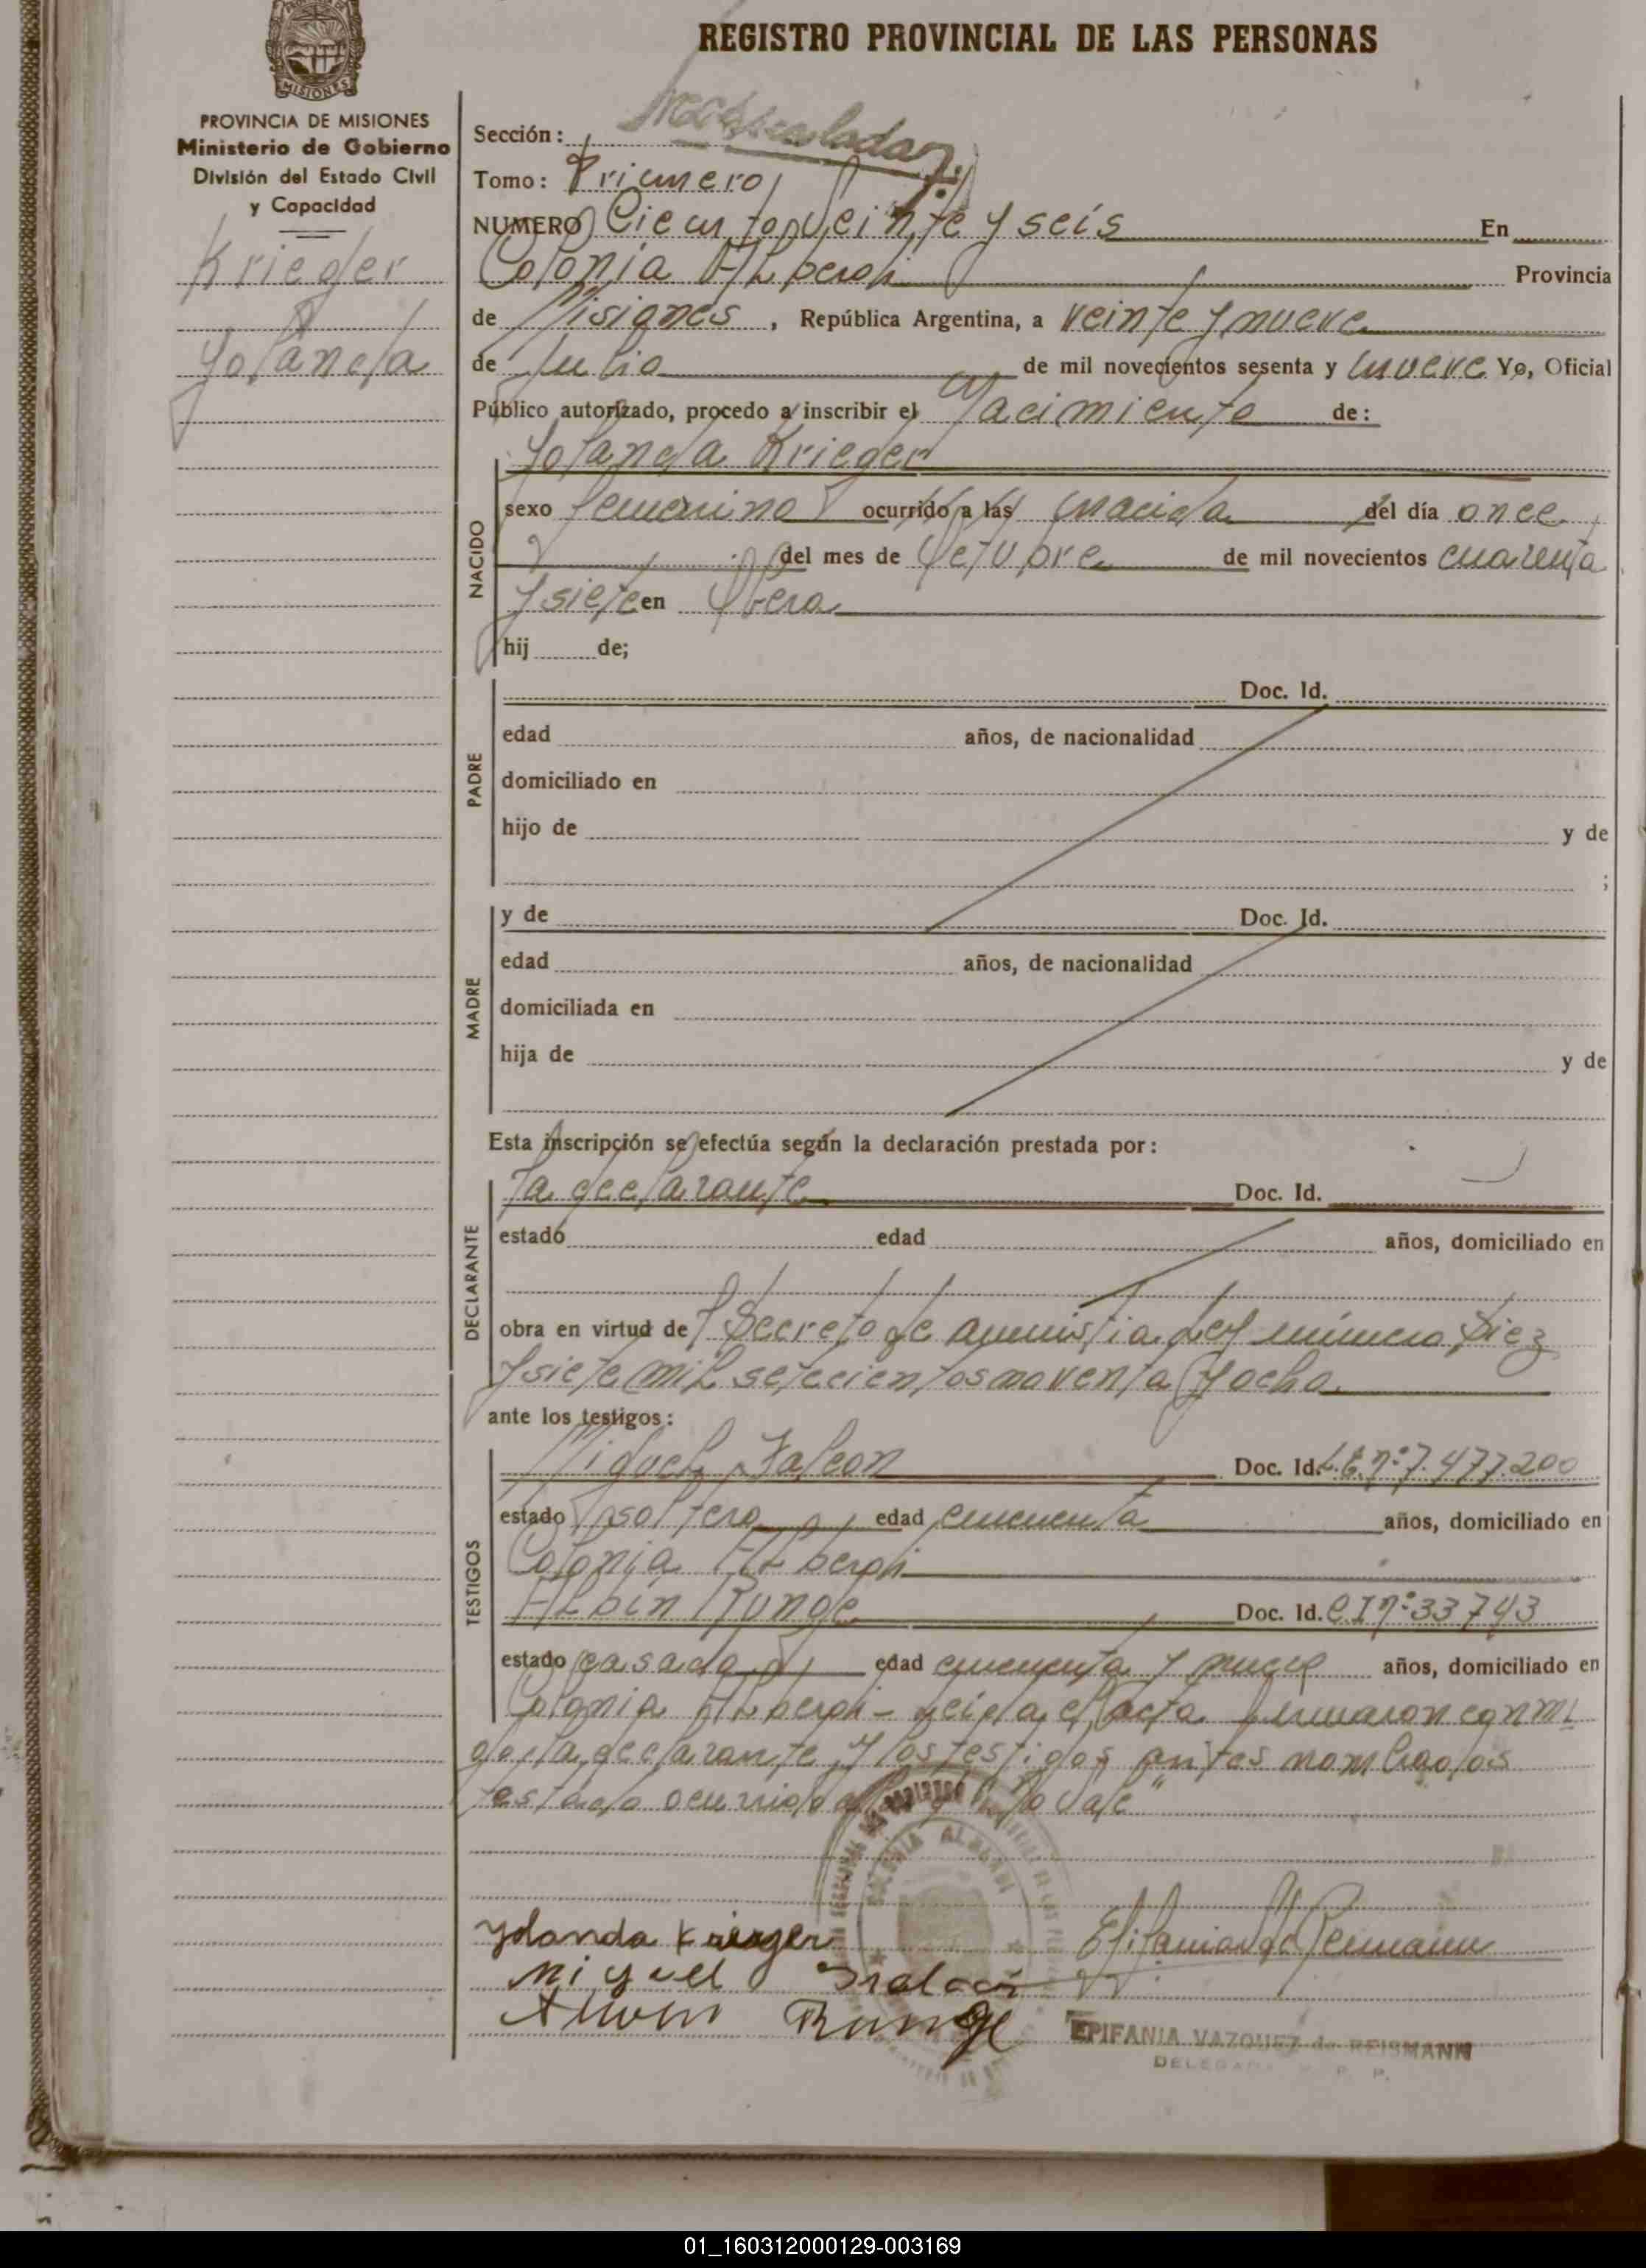 MISIONES
REGISTRO PROVINCIAL DE LAS PERSONAS
PROVINCIA DE MISIONES
Ministerio de Gobierno
División del Estado Civil
y Capacidad
Krieger
Yolanda
Sección:
Tomo: Primero
NUMERO Ciento veinte y seis En
Colonia Alberdi Provincia
de Misiones, República Argentina, a veinte y nueve
de Julio de mil novecientos sesenta y nueve Yo, Oficial
Público autorizado, procedo a inscribir el Nacimiento de:
Yolanda Krieger
NACIDO
sexo femenino ocurrido a las nacida del día once
del mes de Octubre de mil novecientos cuarenta
y siete en Obera
hij de;
PADRE
Doc. Id.
edad años, de nacionalidad
domiciliado en
hijo de y de
;
MADRE
y de Doc. Id.
edad años, de nacionalidad
domiciliada en
hija de y de
Esta inscripción se efectúa según la declaración prestada por:
DECLARANTE
la declarante Doc. Id.
estado edad años, domiciliado en
obra en virtud del Decreto de amnistia del número Diez
y siete mil setecientos noventa y ocho
ante los testigos:
TESTIGOS
Miguel Falcon Doc. Id. L.E.nº 7.477.200
estado soltero edad cincuenta años, domiciliado en
Colonia Alberdi
Albin Runge Doc. Id. C I nº 33743
estado casado edad cincuenta y nueve años, domiciliado en
Colonia Alberdi - leida el acta firmaron conmi
go la declarante y los testigos antes nombrados
testado ocurrido a las "No vale"
COLONIA ALBERDI
Yolanda Krieger
Miguel Falcon
Albin Runge
EPIFANIA VAZQUEZ de REISMANN
DELEGADA R. P. P.
01_160312000129-003169